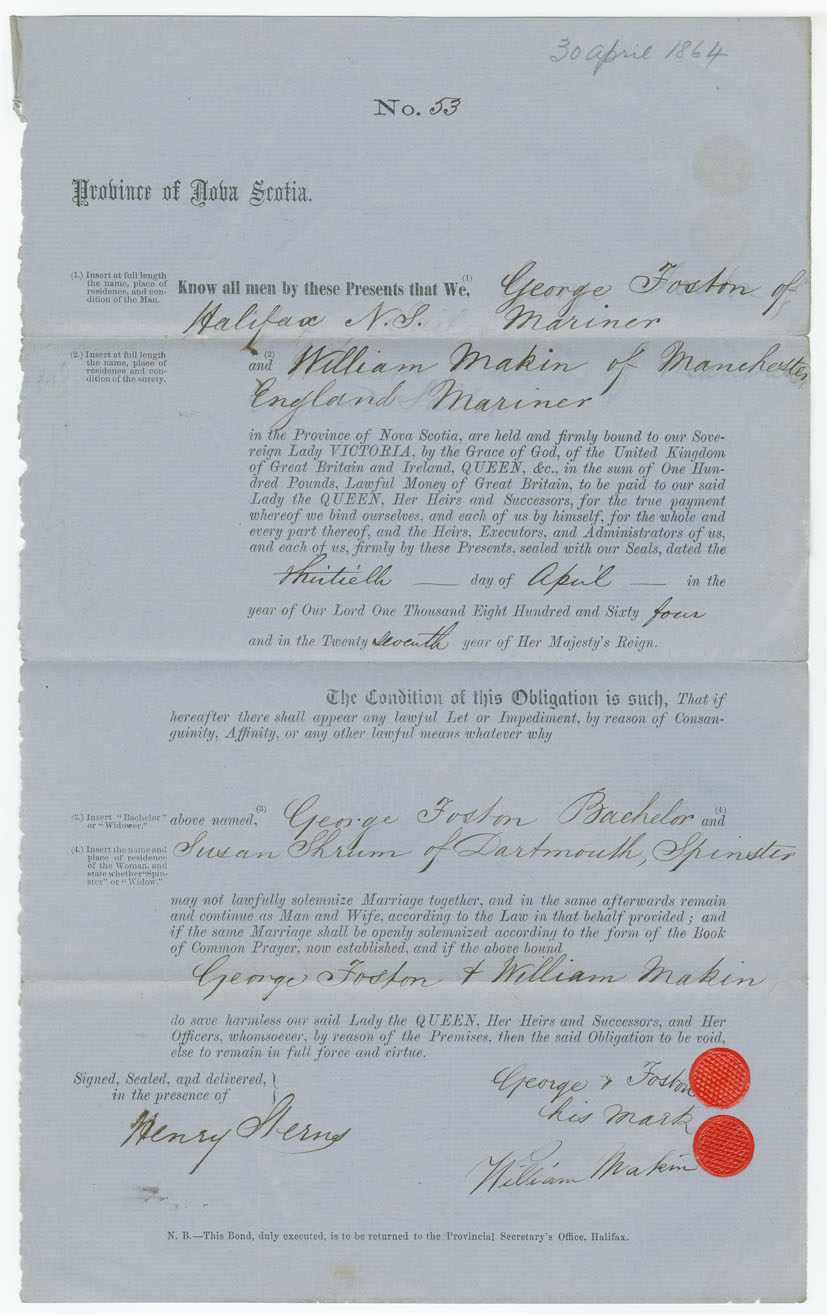 30 April 1864
No. 53
Province of Nova Scotia.
(1.) Insert at full length
the name, place of
residence, and con-
dition of the Man.
Know all men by these Presents that We, (1) George Foston of
Halifax N.S. Mariner
(2.) Insert at full length
the name, place of
residence and con-
dition of the surety.
(2)
and William Makin of Manchester
England Mariner
in the Province of Nova Scotia, are held and firmly bound to our Sove-
reign Lady VICTORIA, by the Grace of God, of the United Kingdom
of Great Britain and Ireland, QUEEN, &c., in the sum of One Hun-
dred Pounds, Lawful Money of Great Britain, to be paid to our said
Lady the QUEEN, Her Heirs and Successors, for the true payment
whereof we bind ourselves, and each of us by himself, for the whole and
every part thereof, and the Heirs, Executors, and Administrators of us,
and each of us, firmly by these Presents, sealed with our Seals, dated the
thirtieth — day of April — in the
year of Our Lord One Thousand Eight Hundred and Sixty four
and in the Twenty seventh year of Her Majesty's Reign.
The Condition of this Obligation is such, That if
hereafter there shall appear any lawful Let or Impediment, by reason of Consan-
guinity, Affinity, or any other lawful means whatever why
(3.) Insert "Bachelor"
or "Widower."
above named, (3) George Foston Bachelor and (4)
(4.) Insert the name and
place of residence
of the Woman, and
state whether "Spin-
ster" or "Widow."
Susan Shrum of Dartmouth, Spinster
may not lawfully solemnize Marriage together, and in the same afterwards remain
and continue as Man and Wife, according to the Law in that behalf provided; and
if the same Marriage shall be openly solemnized according to the form of the Book
of Common Prayer, now established, and if the above bound
George Foston & William Makin
do save harmless our said Lady the QUEEN, Her Heirs and Successors, and Her
Officers, whomsoever, by reason of the Premises, then the said Obligation to be void,
else to remain in full force and virtue.
Signed, Sealed, and delivered,
in the presence of
Henry Sterns
George + Foston
his mark
William Makin
N. B.—This Bond, duly executed, is to be returned to the Provincial Secretary's Office, Halifax.